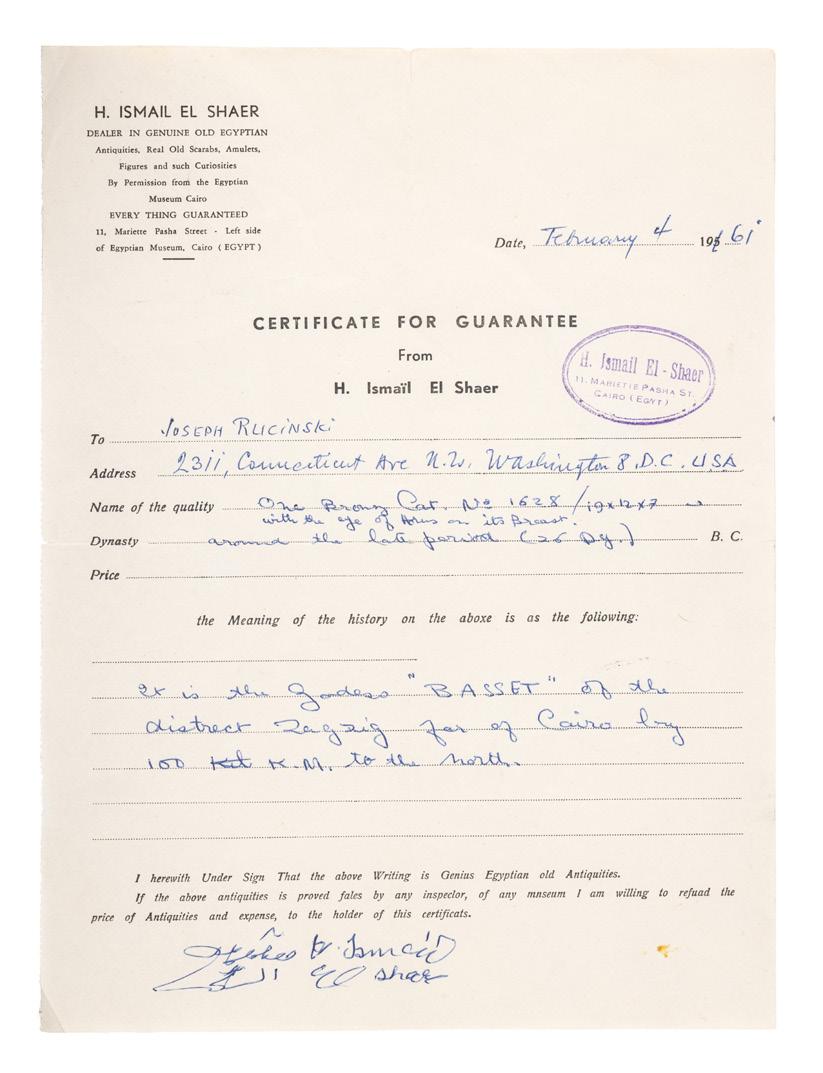 H. ISMAIL EL SHAER
DEALER IN GENUINE OLD EGYPTIAN
Antiquities, Real Old Scarabs, Amulets,
Figures and such Curiosities
By Permission from the Egyptian
Museum Cairo
EVERY THING GUARANTEED
11, Mariette Pasha Street - Left side
of Egyptian Museum, Cairo ( EGYPT )
Date, February 4 1961
CERTIFICATE FOR GUARANTEE
From
H. Ismaïl El Shaer
H. Ismail El-Shaer
11. MARIETTE PASHA ST.
CAIRO ( EGYT )
To JOSEPH RUCINSKI
Address 2311, Connecticut Ave N.W. Washington 8, D.C. USA
Name of the quality One Bronz Cat. No 1628 / 19x12x7
with the eye of Horus on its Breast.
Dynasty around the late period (26 Dy.) B. C.
Price
the Meaning of the history on the aboxe is as the foliowing:
It is the Godess "BASSET" of the
distrect Zagzig far of Cairo by
100 K.M. to the north.
I herewith Under Sign That the above Writing is Genius Egyptian old Antiquities.
If the above antiquities is proved fales by any inspeclor, of any mnseum I am willing to refuad the
price of Antiquities and expense, to the holder of this certificats.
H. Ismail
El Shaer